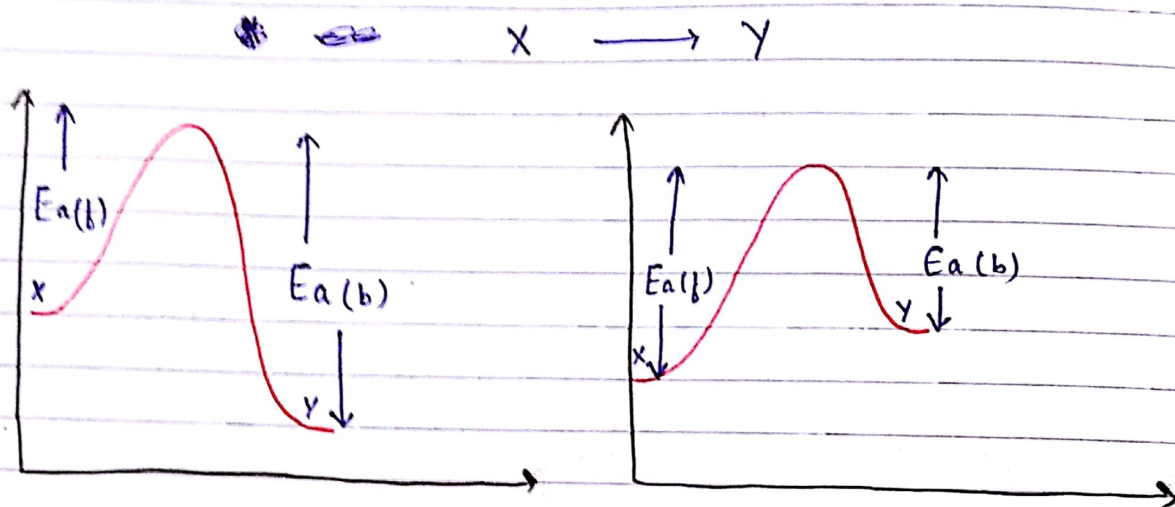 X → Y
Ea(f)
X
Ea(b)
Y
Ea(f)
X
Ea(b)
Y